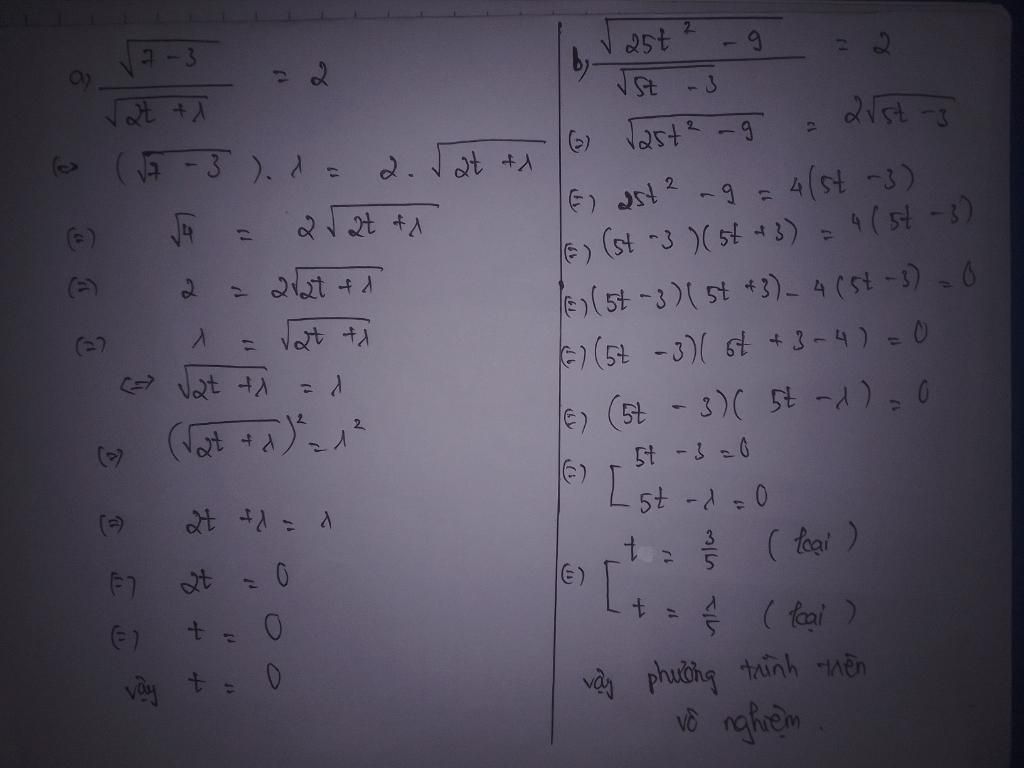 a, √(7 - 3) / √(2t + 1) = 2
(=) (√(7 - 3)) . 1 = 2 . √(2t + 1)
(=) √4 = 2√(2t + 1)
(=) 2 = 2√(2t + 1)
(=) 1 = √(2t + 1)
<=> √(2t + 1) = 1
(=) (√(2t + 1))² = 1²
(=) 2t + 1 = 1
(=) 2t = 0
(=) t = 0
vậy t = 0
b, √(25t² - 9) / √(5t - 3) = 2
(=) √(25t² - 9) = 2√(5t - 3)
(=) 25t² - 9 = 4(5t - 3)
(=) (5t - 3)(5t + 3) = 4(5t - 3)
(=) (5t - 3)(5t + 3) - 4(5t - 3) = 0
(=) (5t - 3)(5t + 3 - 4) = 0
(=) (5t - 3)(5t - 1) = 0
(=) [ 5t - 3 = 0
5t - 1 = 0
(=) [ t = 3/5 (loại)
t = 1/5 (loại)
vậy phương trình trên
vô nghiệm.